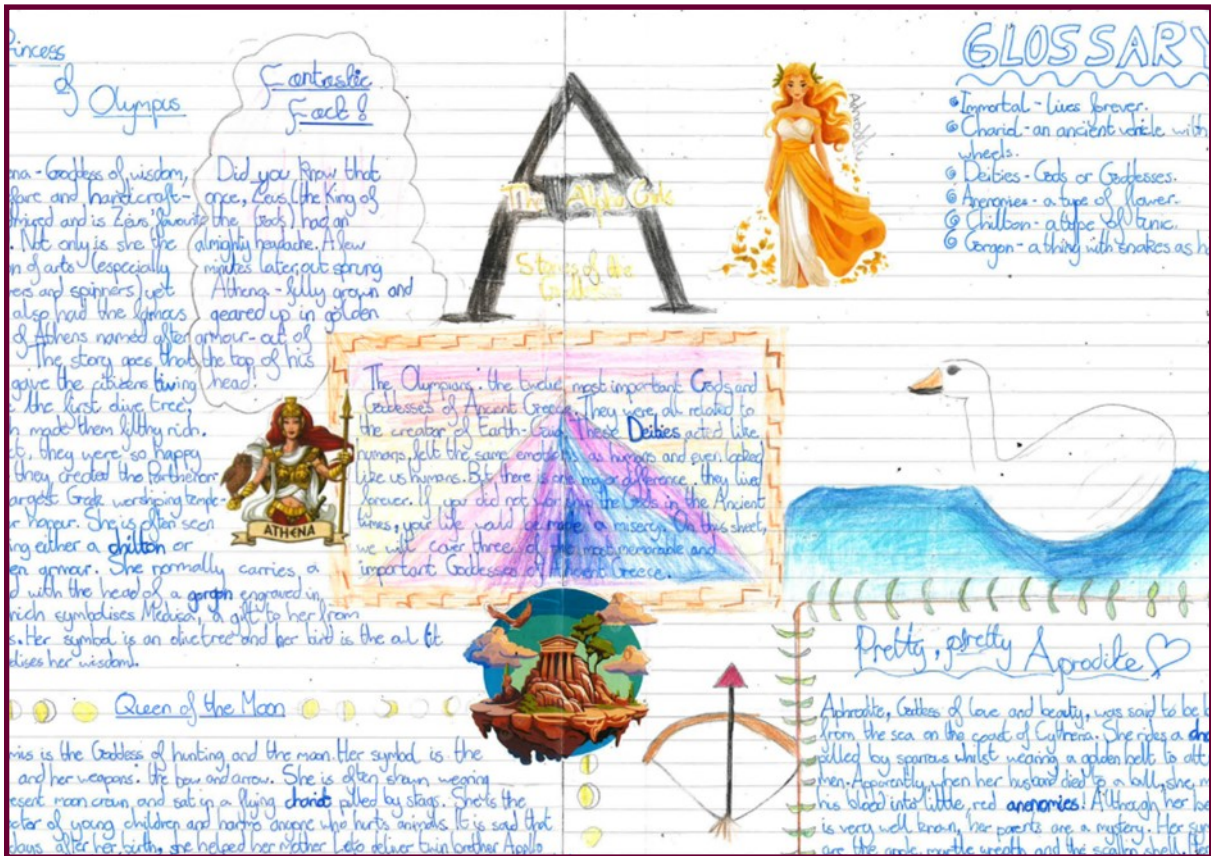 Princess
of Olympus
Goddess of wisdom,
and handicraft-
and is Zeus' favourite
. Not only is she the
of arts (especially
and spinners) yet
also had the famous
of Athens named after
The story goes that
gave the citizens living
the first olive tree,
made them filthy rich.
they were so happy
they created the Parthenon-
largest Greek worshiping temple-
honour. She is often seen
either a chilton or
armour. She normally carries, a
with the head of a gorgon engraved in,
which symbolises Medusa, a gift to her from
. Her symbol is an olive tree and her bird is the owl (it
her wisdom).
Fantastic
Fact!
Did you know that
once, Zeus (the King of
the Gods) had an
almighty headache. A few
minutes later, out sprung
Athena - fully grown and
geared up in golden
armour - out of
the top of his
head!
ATHENA
The Alpha Gods
Stories of the
Goddesses
The Olympians: the twelve most important Gods and
Goddesses of Ancient Greece. They were all related to
the creator of Earth - Gaia. These Deities acted like
humans, felt the same emotions as humans and even looked
like us humans. But there is one major difference: they lived
forever. If you did not worship the Gods in the Ancient
times, your life would be made a misery. On this sheet,
we will cover three of the most memorable and
important Goddesses of Ancient Greece.
GLOSSARY
Immortal - lives forever.
Chariot - an ancient vehicle with
wheels.
Deities - Gods or Goddesses.
Anenomies - a type of flower.
Chilton - a type of tunic.
Gorgon - a thing with snakes as
Queen of the Moon
is the Goddess of hunting and the moon. Her symbol is the
and her weapons: the bow and arrow. She is often shown wearing
moon crown, and sat in a flying chariot pulled by stags. She is the
of young children and harms anyone who hurts animals. It is said that
days after her birth, she helped her mother Leto deliver twin brother Apollo
Pretty, pretty Aprodite
Aphrodite, Goddess of love and beauty, was said to be
from the sea on the coast of Cythrena. She rides a
pulled by sparrows whilst wearing a golden belt to
men. Apparently when her husband died to a bull, she,
his blood into little, red anenomies! Although her
is very well known, her parents are a mystery. Her
are the apple, myrtle wreath and the scallop shell.